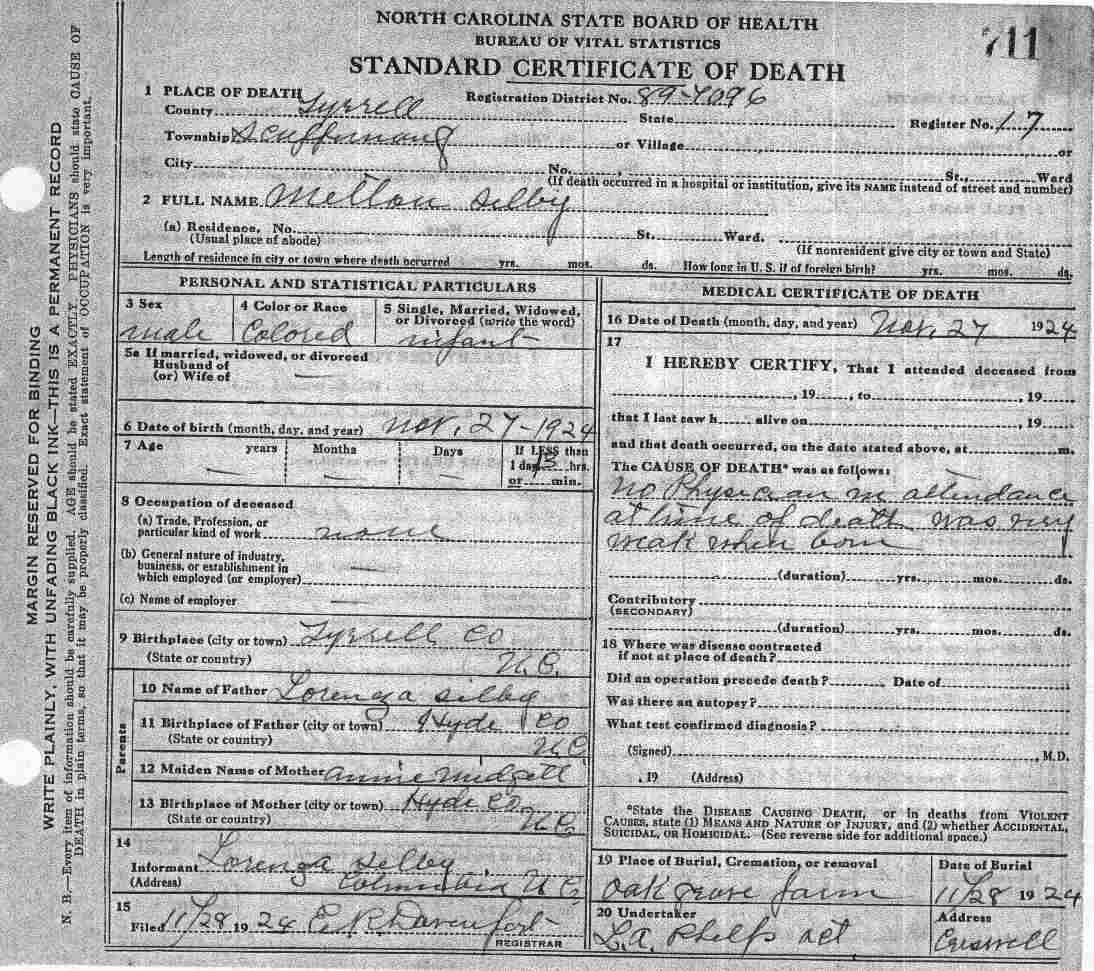 NORTH CAROLINA STATE BOARD OF HEALTH
BUREAU OF VITAL STATISTICS
711
STANDARD CERTIFICATE OF DEATH
1 PLACE OF DEATH
Registration District No. 89-7096
County Tyrrell State Register No. 17
Township Scuppernong or Village or
City No. St., Ward
(If death occurred in a hospital or institution, give its NAME instead of street and number)
2 FULL NAME Melton Selby
(a) Residence, No. St. Ward.
(Usual place of abode) (If nonresident give city or town and State)
Length of residence in city or town where death occurred yrs. mos. ds. How long in U. S. if of foreign birth? yrs. mos. ds.
PERSONAL AND STATISTICAL PARTICULARS
3 Sex
male
4 Color or Race
Colored
5 Single, Married, Widowed,
or Divorced (write the word)
infant
5a If married, widowed, or divorced
Husband of
(or) Wife of
6 Date of birth (month, day, and year) Nov. 27-1924
7 Age years Months Days If LESS than
1 day 13 hrs.
or min.
8 Occupation of deceased
(a) Trade, Profession, or
particular kind of work none
(b) General nature of industry,
business, or establishment in
which employed (or employer)
(c) Name of employer
9 Birthplace (city or town) Tyrrell Co
(State or country) N.C.
Parents
10 Name of Father Lorenza Selby
11 Birthplace of Father (city or town) Hyde Co
(State or country) N.C
12 Maiden Name of Mother Annie Midgett
13 Birthplace of Mother (city or town) Hyde Co.
(State or country) N.C.
14
Informant Lorenza Selby
(Address) Columbia N.C.
15
Filed 11/28 1924 E. R. Davenport
REGISTRAR
MEDICAL CERTIFICATE OF DEATH
16 Date of Death (month, day, and year) Nov. 27 1924
17
I HEREBY CERTIFY, That I attended deceased from
, 19 , to , 19
that I last saw h alive on , 19
and that death occurred, on the date stated above, at m.
The CAUSE OF DEATH* was as follows:
No Physician in attendance
at time of death was very
weak when born
(duration) yrs. mos. ds.
Contributory
(SECONDARY)
(duration) yrs. mos. ds.
18 Where was disease contracted
if not at place of death?
Did an operation precede death? Date of
Was there an autopsy?
What test confirmed diagnosis?
(Signed) , M.D.
, 19 (Address)
*State the DISEASE CAUSING DEATH, or in deaths from VIOLENT
CAUSES, state (1) MEANS AND NATURE OF INJURY, and (2) whether ACCIDENTAL,
SUICIDAL, OR HOMICIDAL. (See reverse side for additional space.)
19 Place of Burial, Cremation, or removal
Oak Grove farm
Date of Burial
11/28 1924
20 Undertaker
L.A. Phelps act
Address
Creswell
MARGIN RESERVED FOR BINDING
WRITE PLAINLY, WITH UNFADING BLACK INK—THIS IS A PERMANENT RECORD
N. B.—Every item of information should be carefully supplied. AGE should be stated EXACTLY. PHYSICIANS should state CAUSE OF
DEATH in plain terms, so that it may be properly classified. Exact statement of OCCUPATION is very important.